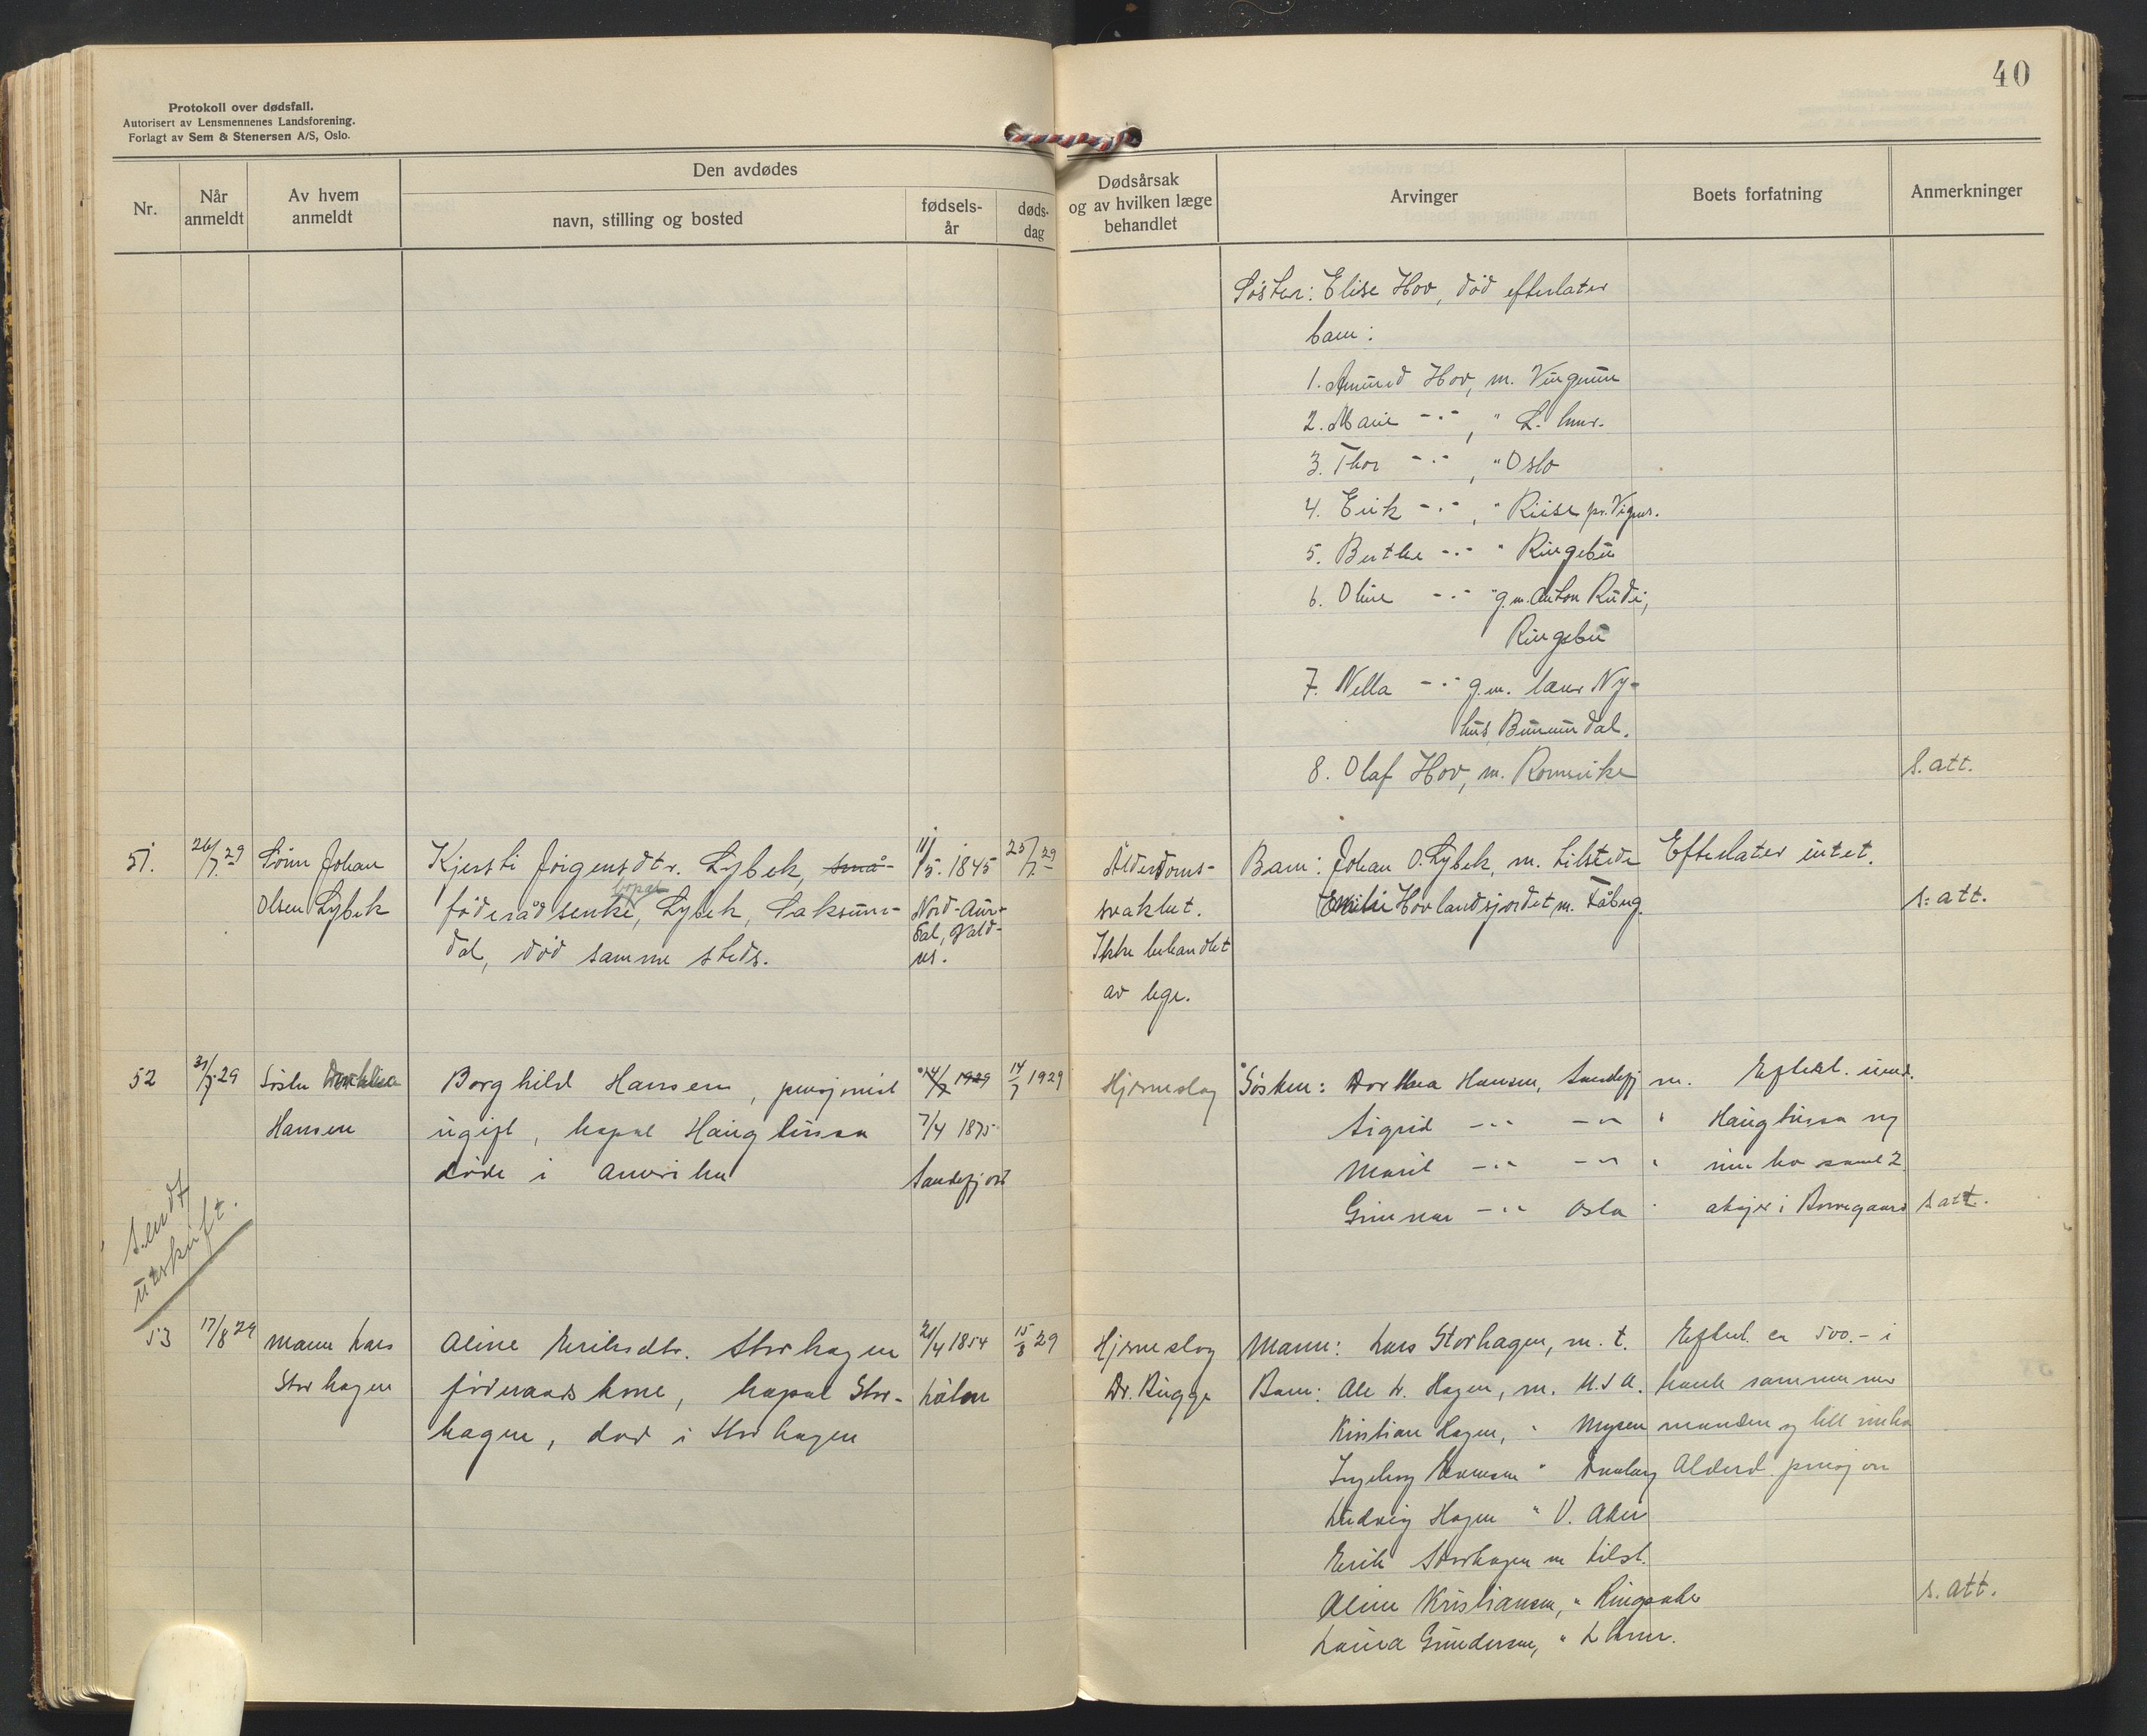 40
Protokoll over dødsfall.
Autorisert av Lensmennenes Landsforening.
Forlagt av Sem & Stenersen A/S, Oslo.
Nr.
Når anmeldt
Av hvem anmeldt
Den avdødes
navn, stilling og bosted
fødsels-år
døds-dag
Dødsårsak og av hvilken læge behandlet
Arvinger
Boets forfatning
Anmerkninger
Söster: Elise Hov, död efterlater
barn:
1. Amund Hov, m. Vingrum
2. Marie -"-, " L.hmr.
3. Thor -"-, " Oslo
4. Erik -"-, " Riise pr. Vigns.
5. Berthe -"- " Ringebu
6. Oline -"- " g.m. Anton Rudi,
Ringebu
7. Nella -"- g.m. Lars Ny-
hus, Brumundal.
8. Olaf Hov, m. Romerike
s. att.
51. 26/7 29 Sönn Johan
Olsen Lybek
Kjersti Jörgensdtr. Lybek, små-
föderådsenke, bopæl Lybek, Saksum-
dal, död samme steds.
11/5. 1845
Nord-Aur-
dal, Vald-
res.
25/7 29
Alderdoms-
svakhet.
Ikke behandlet
av lege.
Barn: Johan O. Lybek, m. tilstede
Emilie Hovlandsjordet m. Fåbrg.
Efterlater intet.
s. att.
52 31/7 29 Söster Dorthea
Hansen
Borghild Hansen, pensjonist
ugift, bopæl Haugtussa
döde i Amerika
14/7 1929
7/4 1875
Sandefjord
14/7 1929
Hjerneslag
Sösken: Dorthea Hansen, Sandefj m.
Sigrid -"- -"- "
Marit -"- -"- "
Gunnar -"- Oslo "
Efterl. eiend.
Haugtussa og
innbo samt 2
aksjer i Borregaard
s. att.
Sendt
utskrift.
53 17/8 29 Mann Lars
Storhagen
Aline Eriksdtr. Storhagen
föderaadskone, bopæl Stor-
hagen, död i Storhagen
21/4 1854
15/8 29
Hjerneslag
Dr. Bugge
Mann: Lars Storhagen, m. t.
Barn: Ole L. Hagen, m. U.S.A.
Kristian Hagen, " Mysen
Ingeborg "
Ludvig Hagen " V. Aker
Erik Storhagen m tilst.
Aline Kristiansen, " Ringsaker
Laura Gundersen, " Lhmr.
Efterl. ca 500.- i
bank sammen med
manden og litt innbo
Alderd. pensjon
s. att.